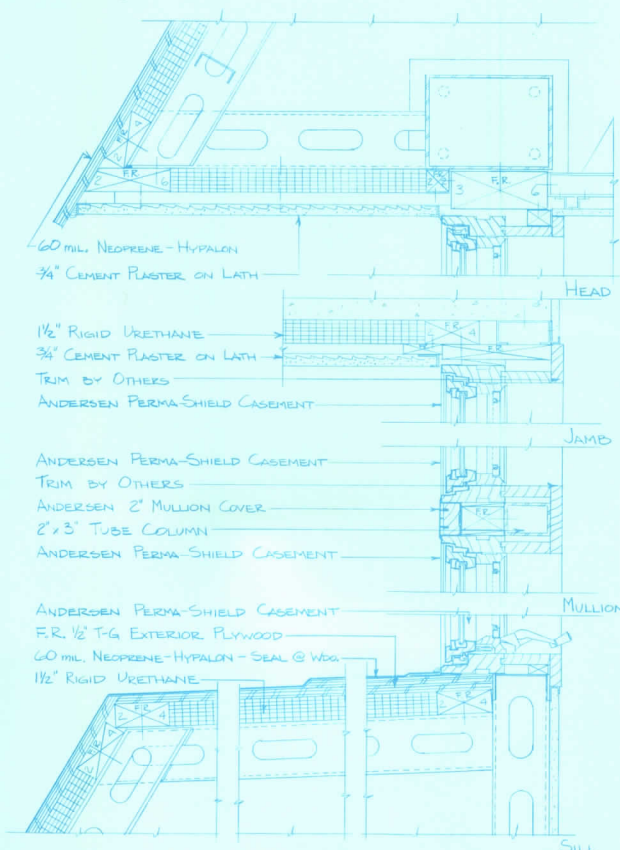 F.R.
2 4
F.R.
2 6
F.R.
3 6
60 mil. NEOPRENE-HYPALON
3/4" CEMENT PLASTER ON LATH
HEAD
1½" RIGID URETHANE
F.R.
2 4
3/4" CEMENT PLASTER ON LATH
F.R.
TRIM BY OTHERS
ANDERSEN PERMA-SHIELD CASEMENT
JAMB
ANDERSEN PERMA-SHIELD CASEMENT
TRIM BY OTHERS
ANDERSEN 2" MULLION COVER
F.R.
2" x 3" TUBE COLUMN
ANDERSEN PERMA-SHIELD CASEMENT
ANDERSEN PERMA-SHIELD CASEMENT
MULLION
F.R. ½" T-G EXTERIOR PLYWOOD
60 mil. NEOPRENE-HYPALON-SEAL @ WDG
1½" RIGID URETHANE
F.R.
2 4
F.R.
2 4
F.R.
2 4
SILL